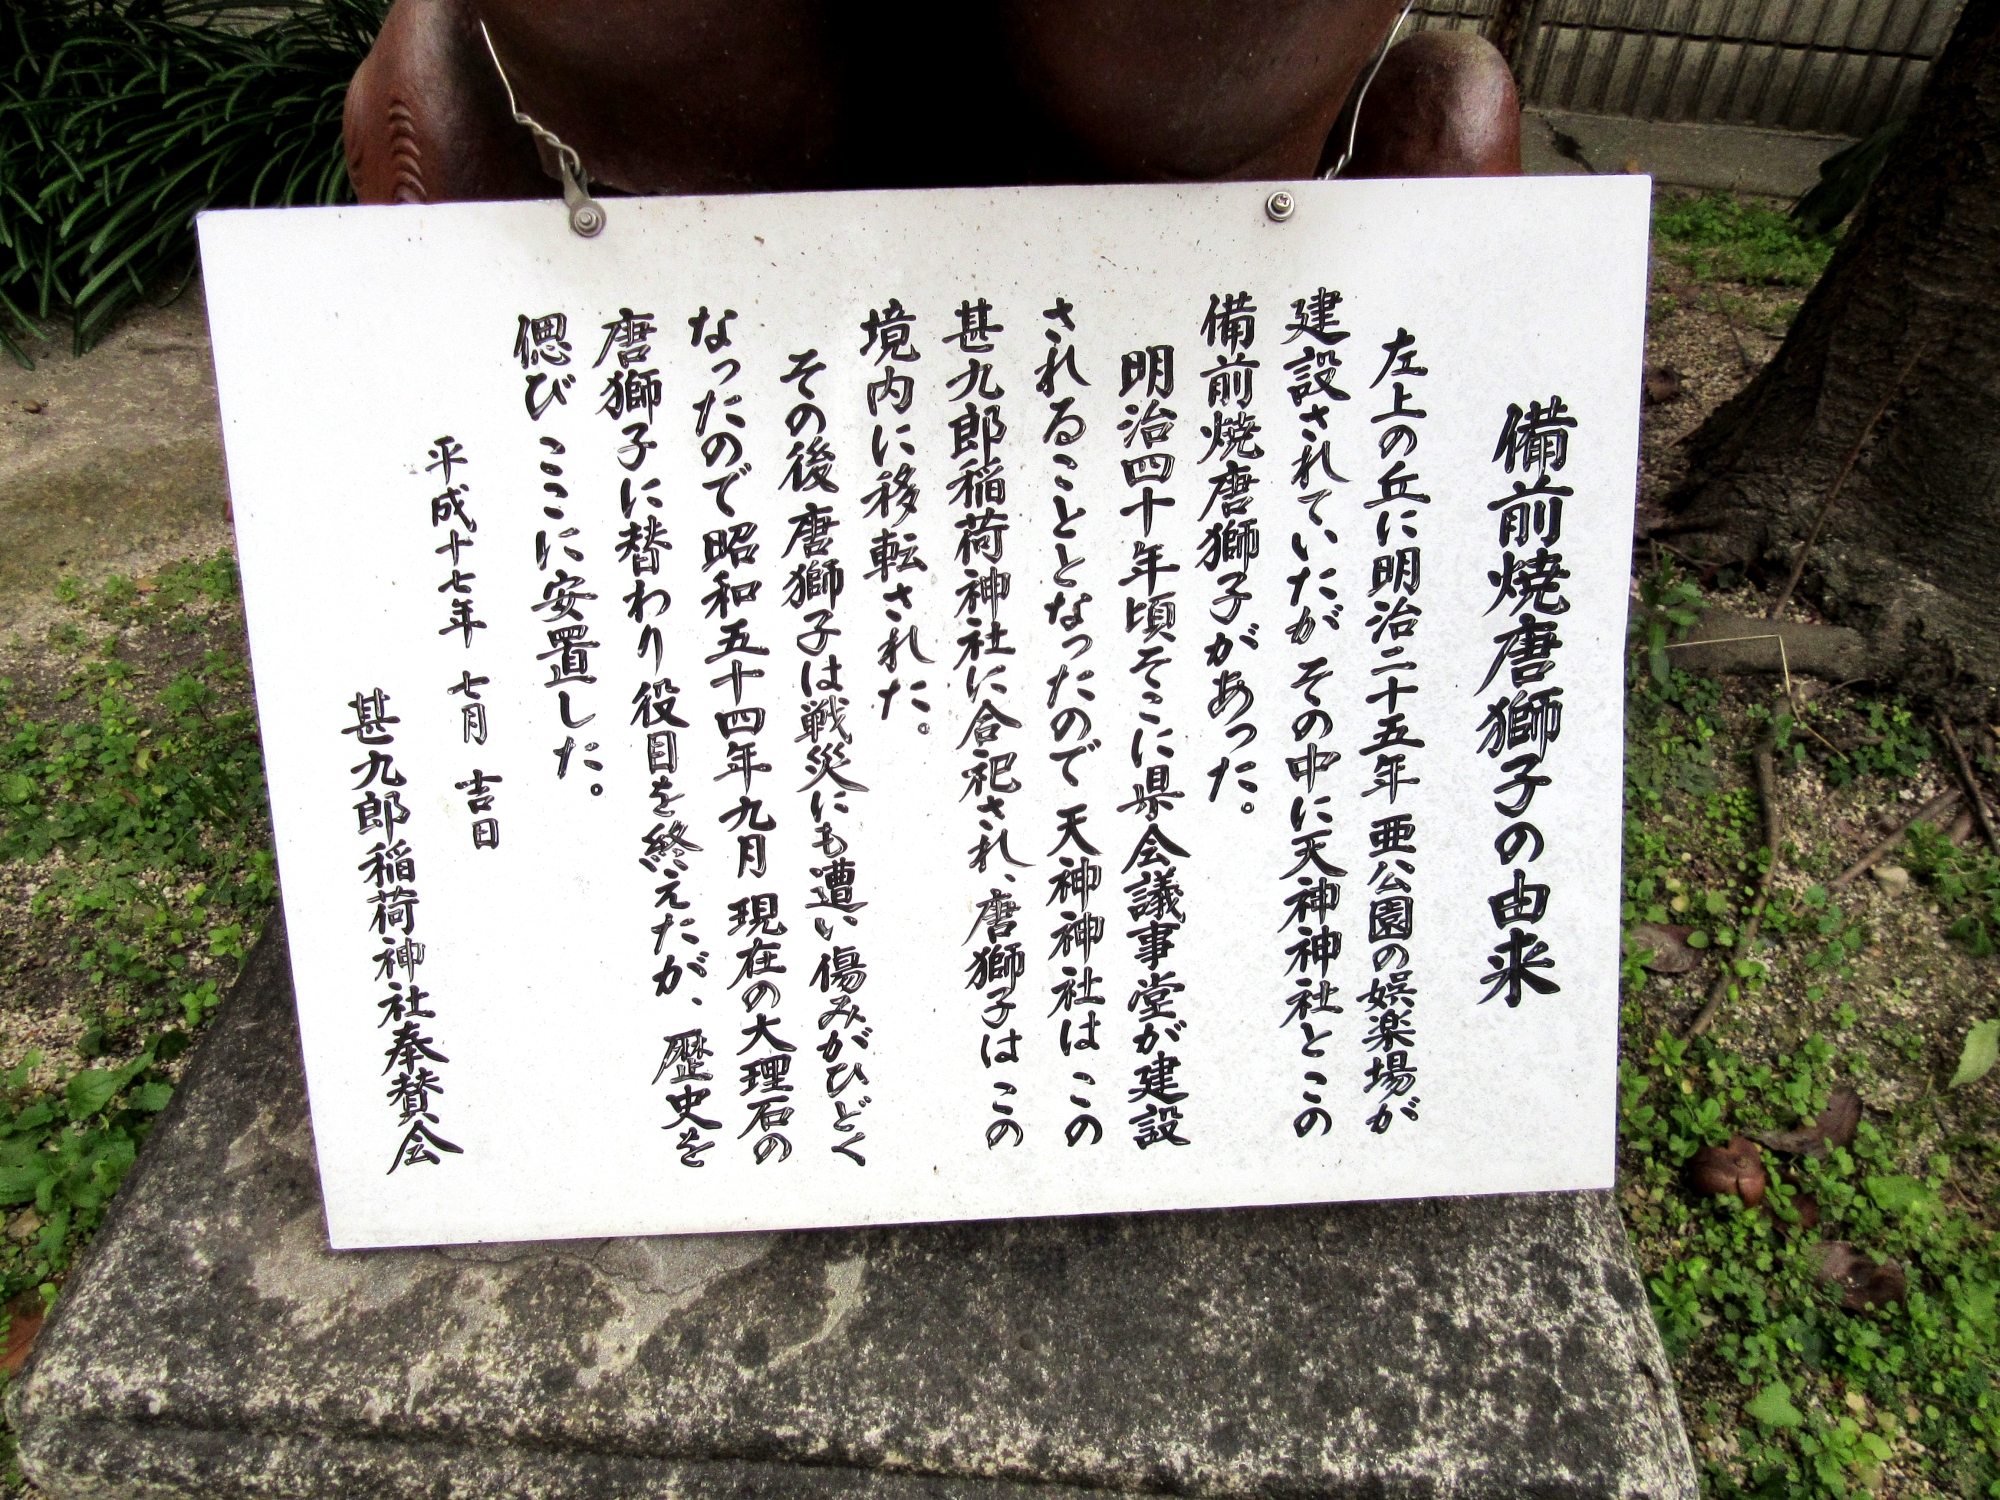 備前焼唐獅子の由来
左上の丘に明治二十五年 亜公園の娯楽場が
建設されていたが その中に天神神社とこの
備前焼唐獅子があった。
明治四十年頃そこに県会議事堂が建設
されることとなったので 天神神社は この
甚九郎稲荷神社に合祀され、唐獅子は この
境内に移転された。
その後 唐獅子は戦災にも遭い 傷みがひどく
なったので 昭和五十四年九月 現在の大理石の
唐獅子に替わり 役目を終えたが、歴史を
偲び ここに安置した。
平成十七年 七月 吉日
甚九郎稲荷神社奉賛会